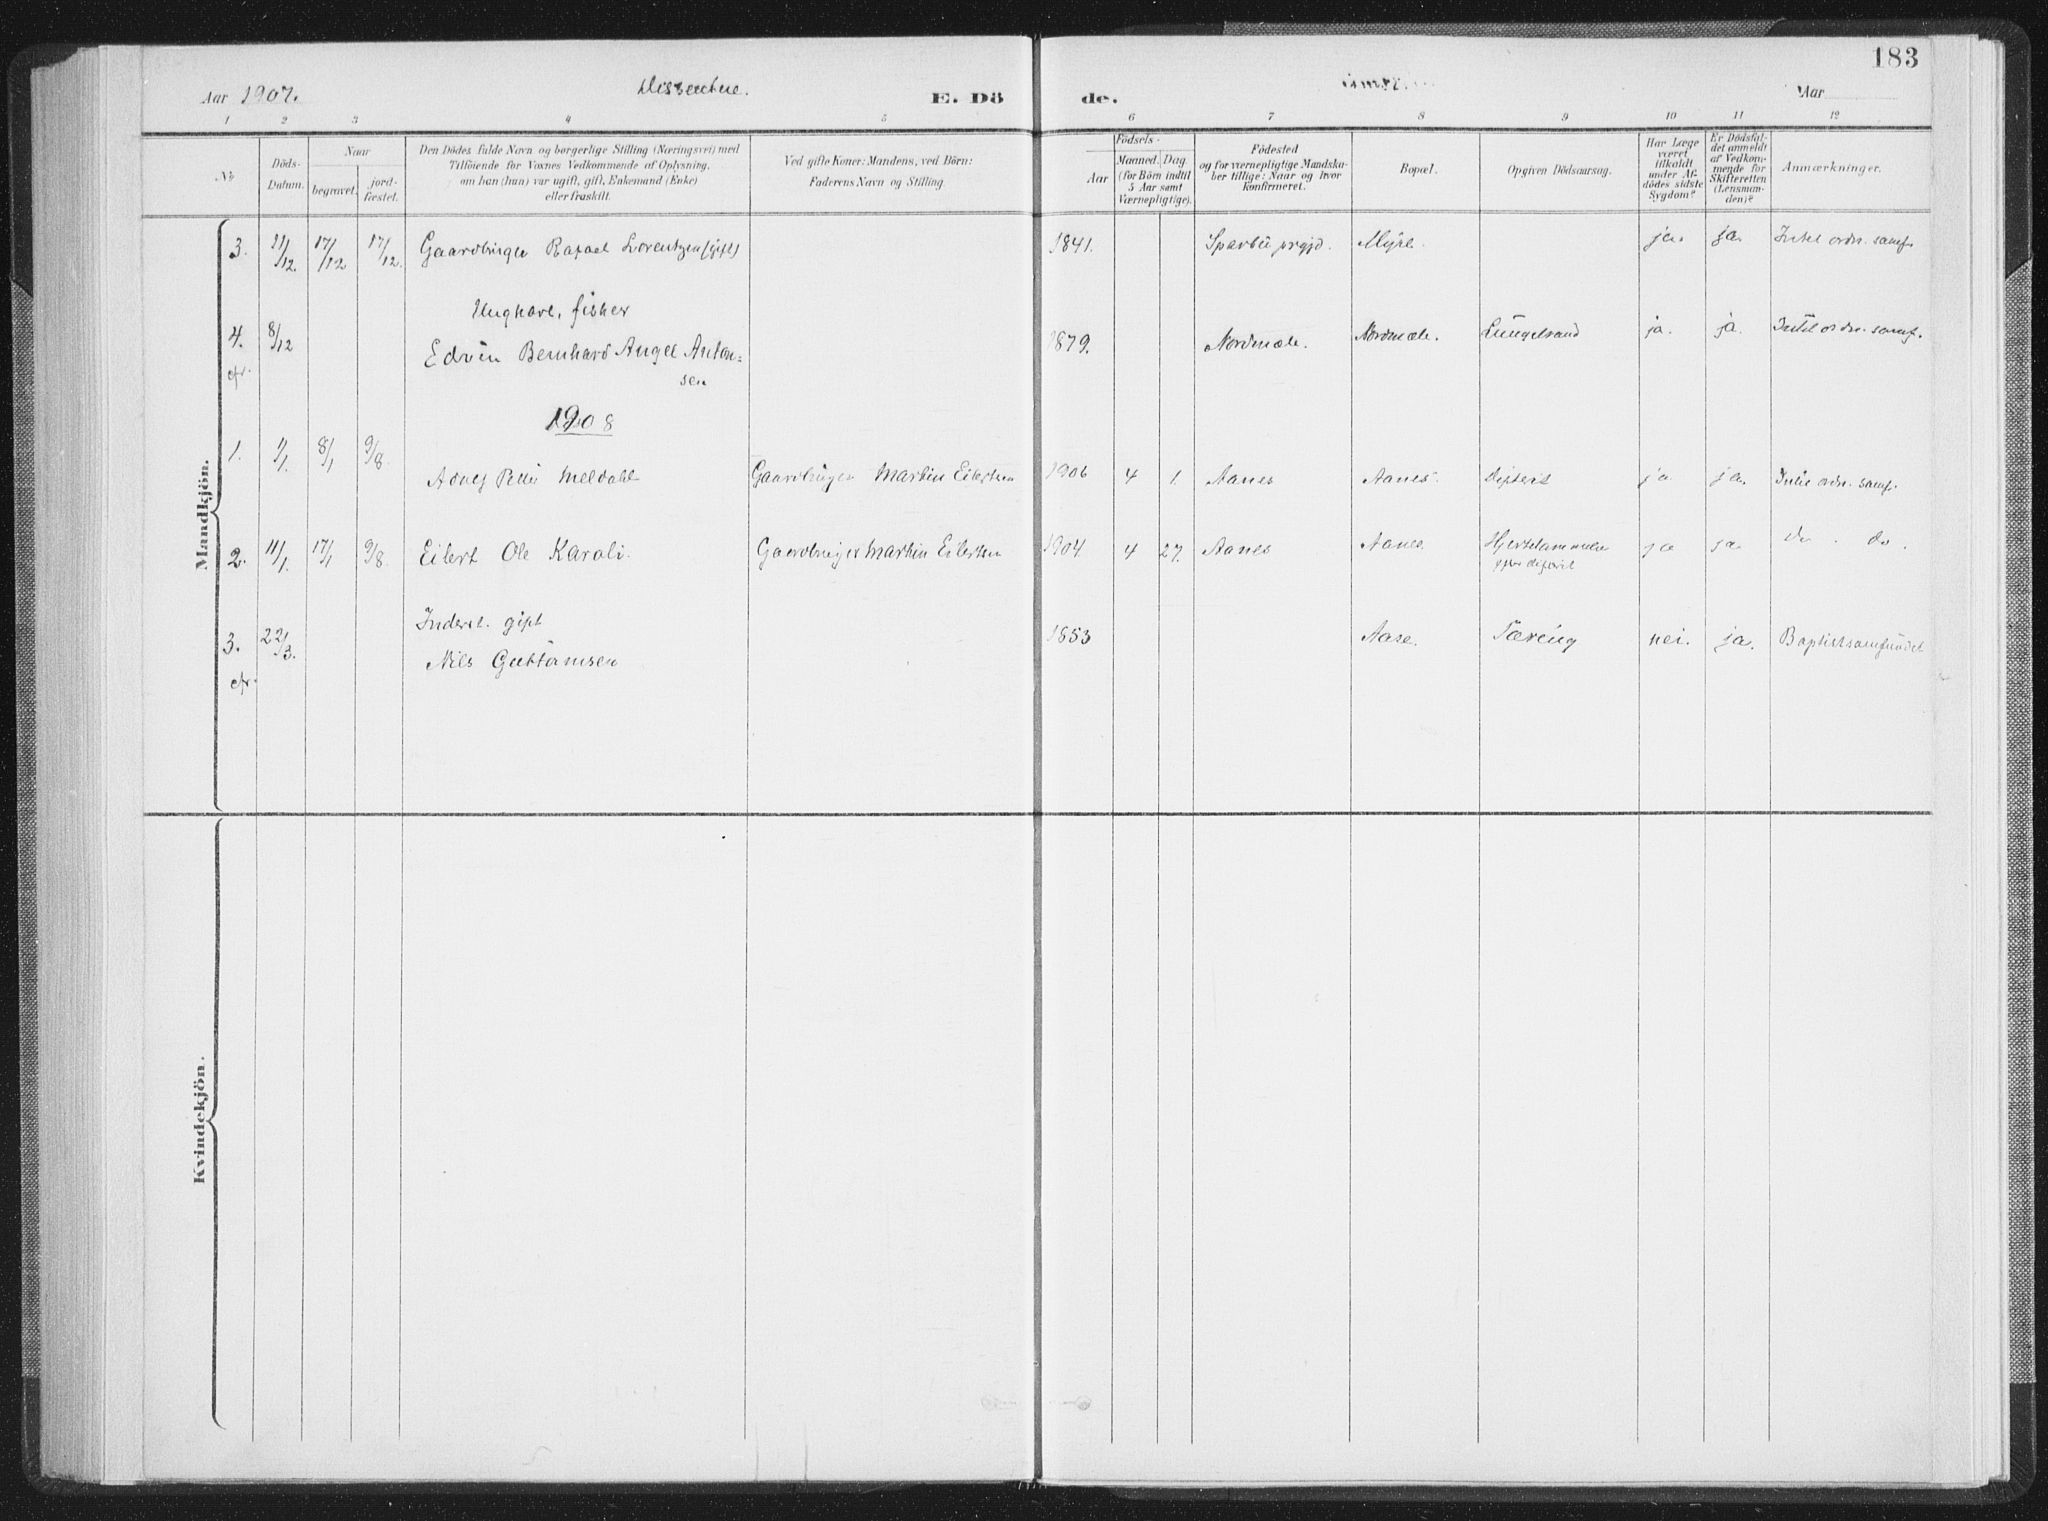 183
Aar 1907. Dissentere. E. Dö de. Aar
1 2 3 4 5 6 7 8 9 10 11 12
No
Döds-Datum.
Naar
begravet.
jord-fæstet.
Den Dödes fulde Navn og borgerlige Stilling (Næringsvei) med
Tilföiende for Voxnes Vedkommende af Oplysning,
om han (hun) var ugift, gift, Enkemand (Enke)
eller fraskilt.
Ved gifte Koner: Mandens, ved Börn:
Faderens Navn og Stilling.
Födsels-
Aar
Maaned. Dag.
(for Börn indtil
5 Aar samt
Værnepligtige).
Födested
og for værnepligtige Mandska-
ber tillige: Naar og hvor
Konfirmeret.
Bopæl.
Opgiven Dödsaarsag.
Har Læge
været
tilkaldt
under Af-
dödes sidste
Sygdom?
Er Dödsfal-
det anmeldt
af Vedkom-
mende for
Skifteretten
(Lensman-
den)?
Anmærkninger.
Mandkjön.
3. 11/12. 17/12 17/12. Gaardbruger Rafael Lorentzen (gift) 1841. Sparbu prgjd. Myre. ja. ja.
Ungkarl, fisker
4. 8/12 Edvin Bernhard Angel Anton= 1879. Nordmæle. Nordmæle. ja. ja.
sen
cfr.
1908
1. 1/1. 8/1 9/8. Meldahl Gaardbruger Martin Eilertsen 1906 4 1. Aanes Aanes. ja ja.
2. 11/1. 17/1 9/8. Eilert Ole Karoli. Gaardbruger Martin Eilertsen 1904 4 27. Aanes Aanes. Hjertelammelse ja ja do. do.
Inderst. gift
3. 22/3. Nils 1853 Aase. Tæring nei. ja. Baptistsamfundet
cfr.
Kvindekjön.